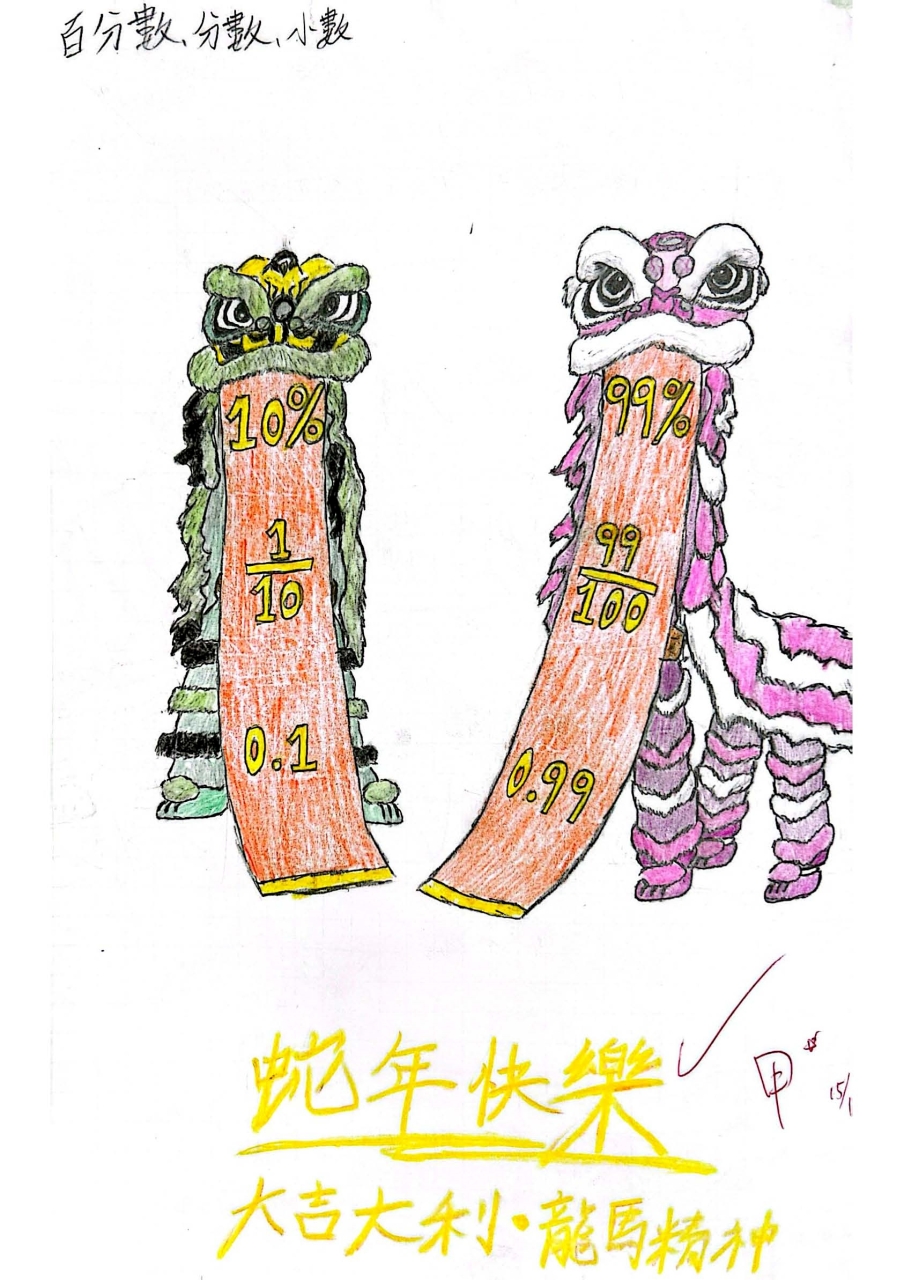 百分數、分數、小數
10%
1
10
0.1
99%
99
100
0.99
蛇年快樂
甲*
15/1
大吉大利·龍馬精神